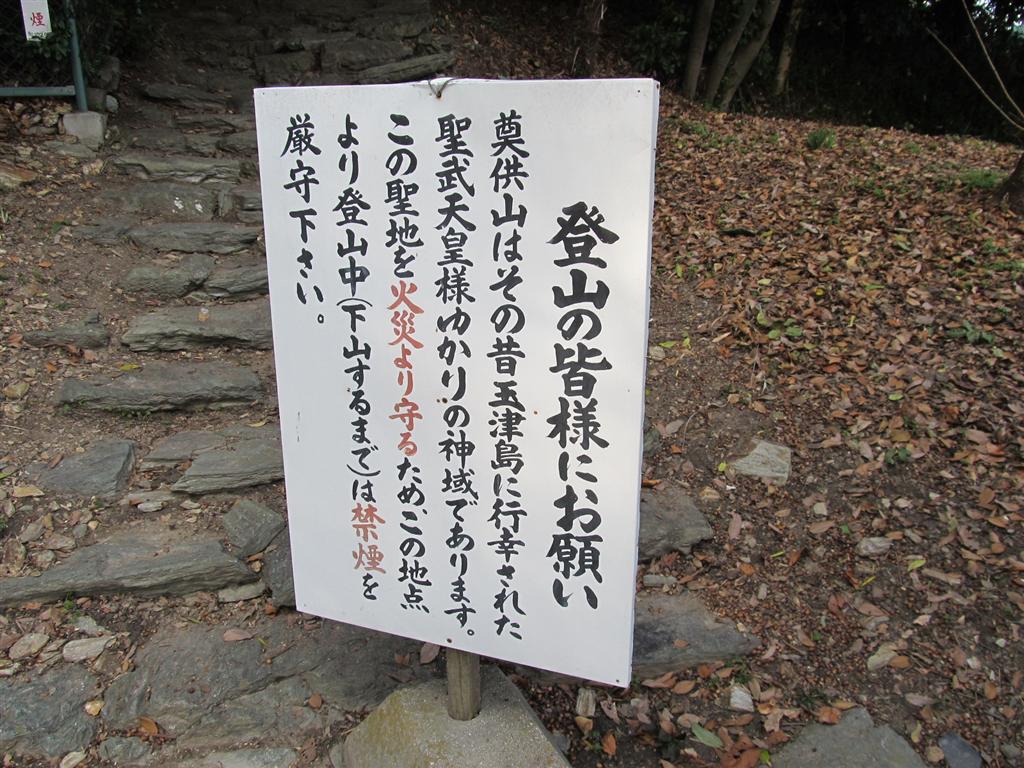 登山の皆様にお願い
奠供山はその昔玉津島に行幸された
聖武天皇様ゆかりの神域であります。
この聖地を火災より守るため、この地点
より登山中(下山するまで)は禁煙を
厳守下さい。
煙